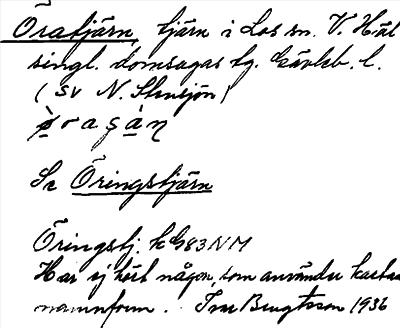 Öratjärn, tjärn i Los sn. V. Häl
singl. domsagas tg. Gävleb. l.
(SV N. Stensjön)
Se Öringstjärn
Öringstj. kG83NM
Har ej hört någon, som använder kartans
namnform. Tore Bengtsson 1936